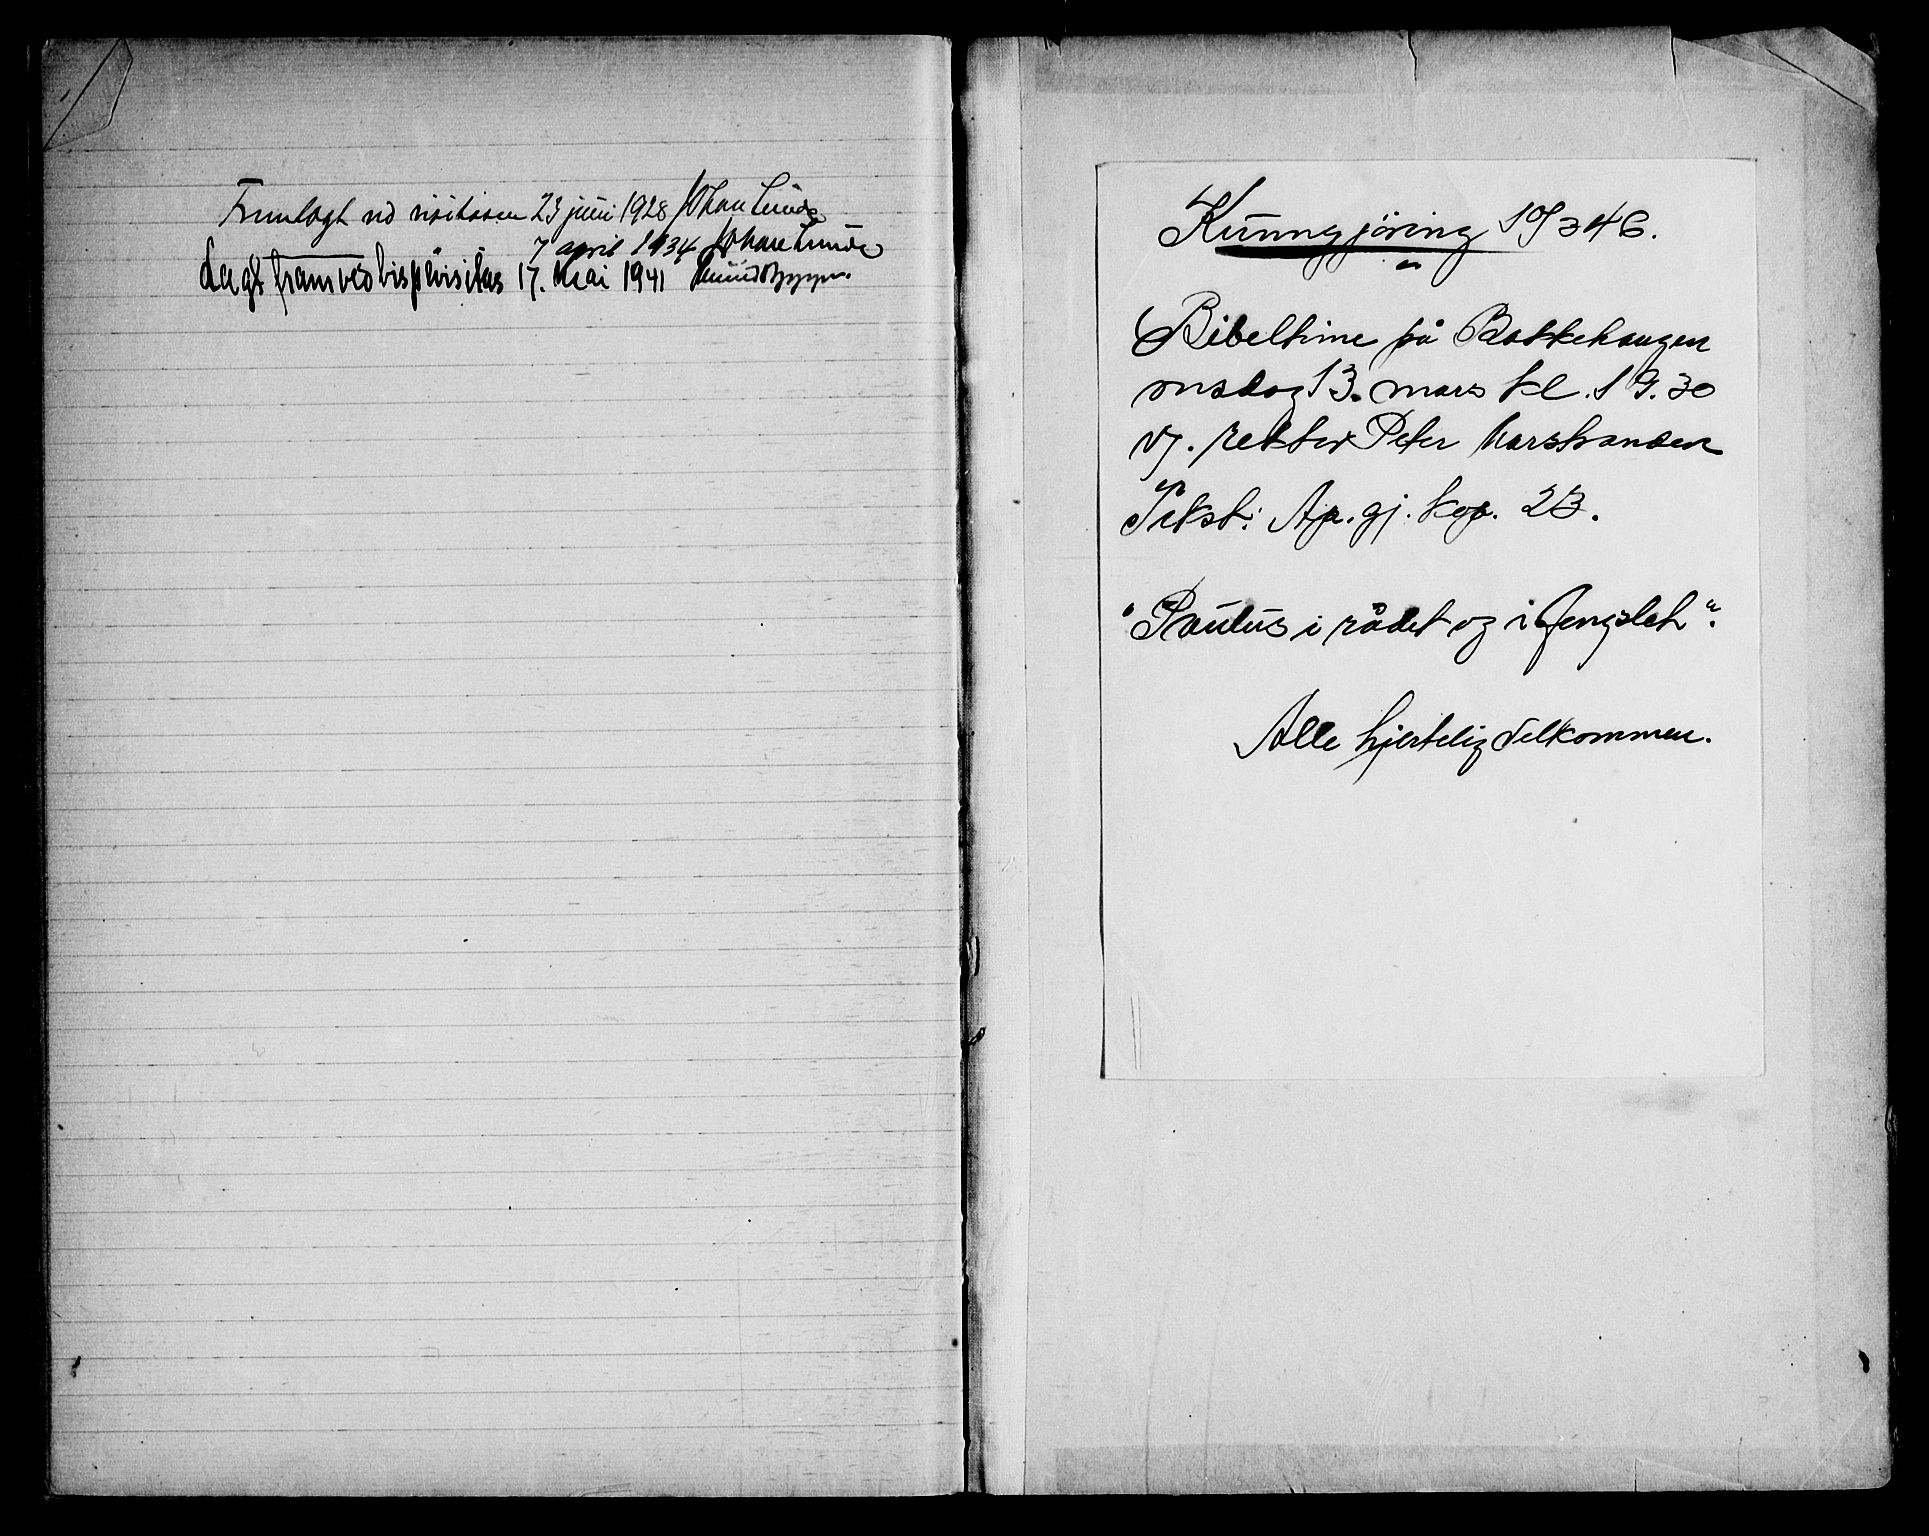 Fremlagt ved visitasen 23 juni 1928 Johan Lunde
7 april 1934 Johan Lunde
Lagt fram ved bispevisitas 17. mai 1941
Kunngjöring 10/3 46.
Bibeltime på Bakkehaugen
onsdag 13. mars kl. 19.30
v/. rektor Peter Marstrander
Tekst: Ap.gj. kap. 23.
"Paulus i rådet og i fengslet".
Alle hjertelig velkommen.